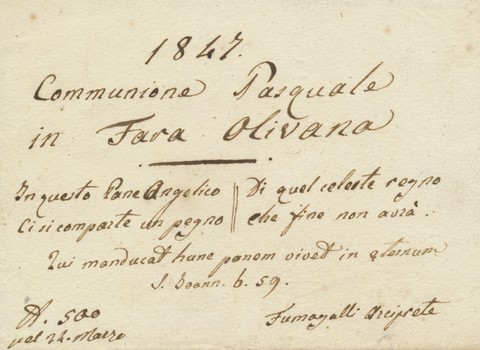 1847.
Communione Pasquale
in Fara Olivana
In questo Pane Angelico
Ci si comparte un pegno
Di quel celeste regno
che fine non avrà.
Qui manducat hunc panem vivet in eternum
S. Joann. 6. 59.
N. 500
pel 24. Marzo
Fumagalli Arciprete